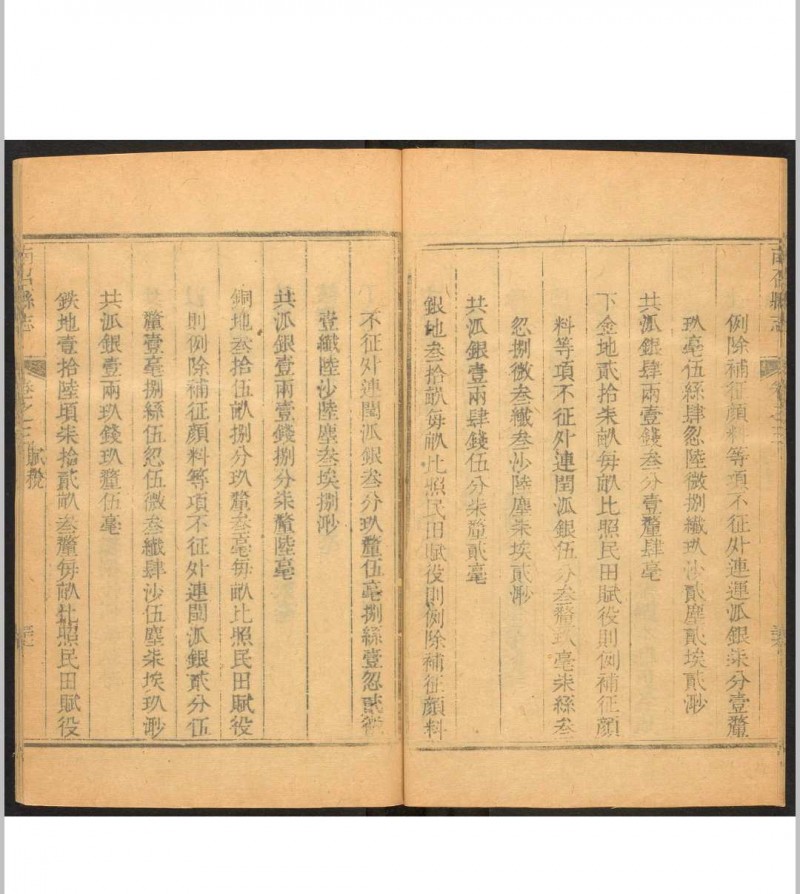 例除補征顔料等項不征外連運派銀柒分壹釐
玖毫伍絲肆忽陸微捌纖玖沙貳塵貳埃貳渺
共派銀肆兩壹錢叁分壹釐肆毫
下金地貳拾柒畝每畝比照民田賦役則例補征顔
料等項不征外連閏派銀伍分叁釐玖毫柒絲叁
忽捌微叁纖叁沙陸塵柒埃貳渺
共派銀壹兩肆錢伍分柒釐貳毫
銀地叁拾畝每畝比照民田賦役則例除補征顔料
不征外連閏派銀叁分玖釐伍毫捌絲壹忽貳微
壹纖陸沙陸塵叁埃捌渺
共派銀壹兩壹錢捌分柒釐陸毫
銅地叁拾伍畝捌分玖釐叁毫每畝比照民田賦役
則例除補征顔料等項不征外連閏派銀貳分伍
釐壹毫捌絲伍忽伍微叁纖肆沙伍塵柒埃玖渺
共派銀壹兩玖錢玖釐伍毫
鉄地壹拾陸頃柒拾貳畝叁釐每畝比照民田賦役
縣志
卷之三 賦役